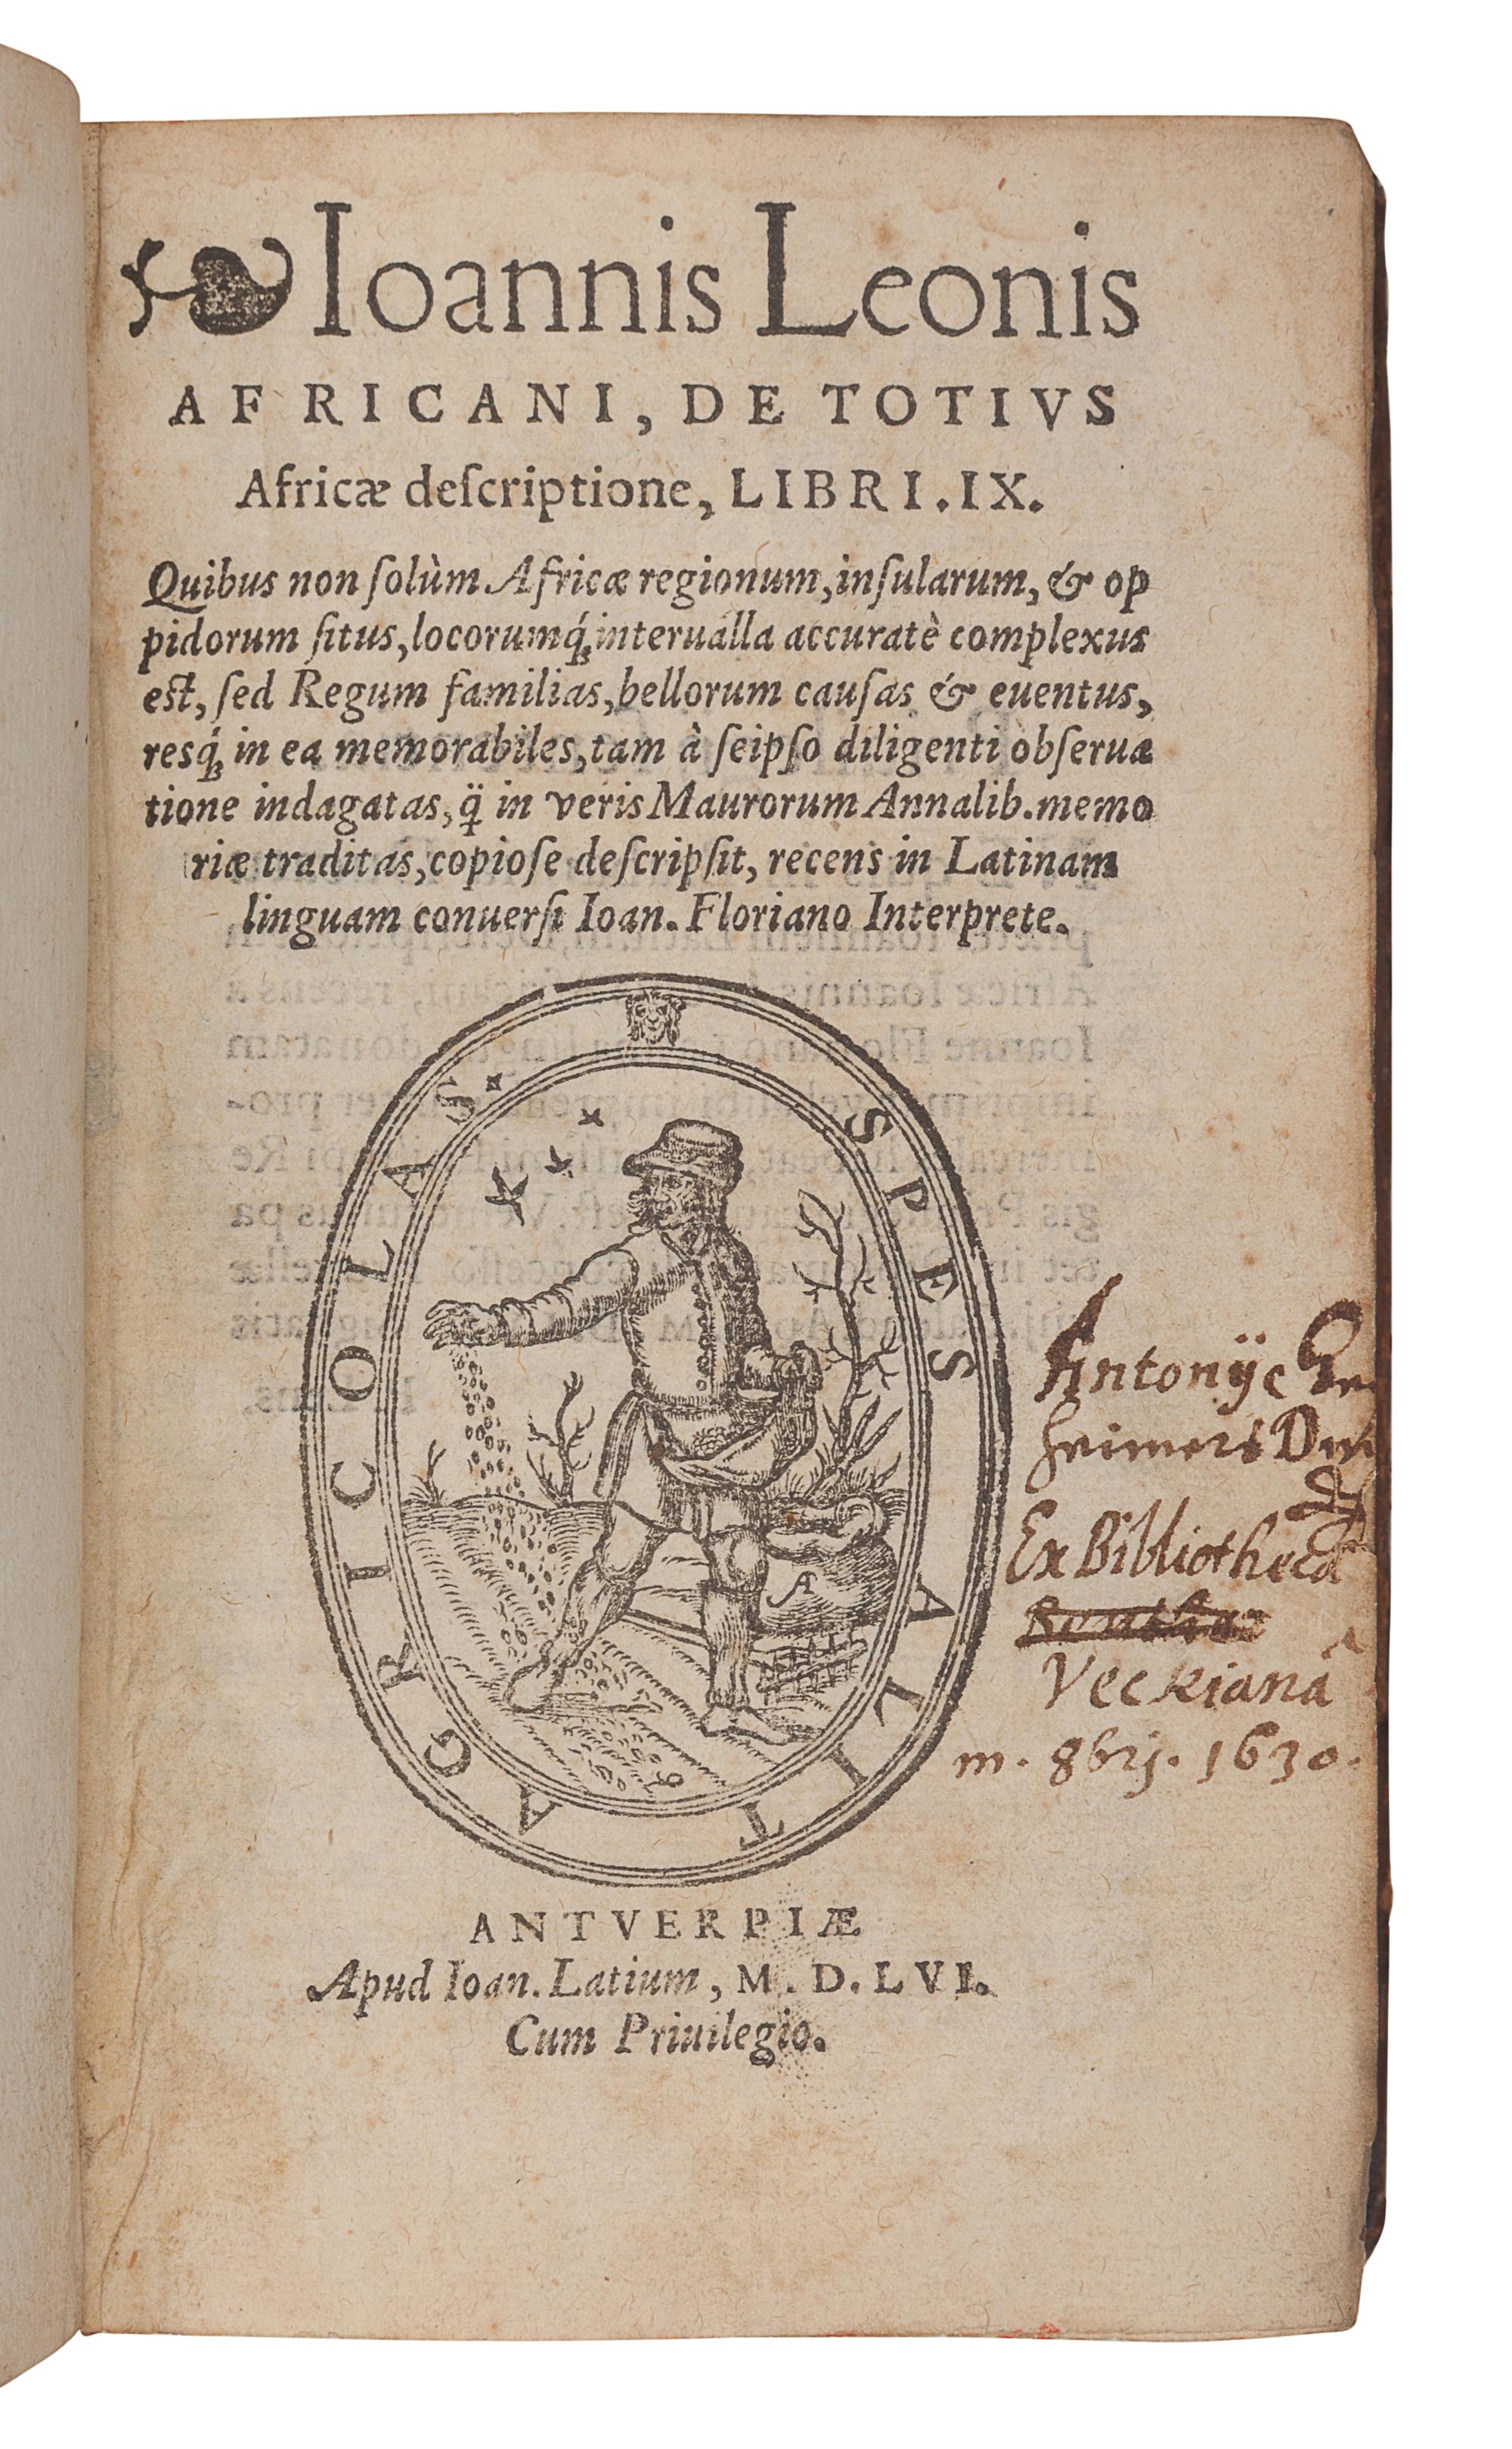 Ioannis Leonis
AFRICANI, DE TOTIVS
Africæ deſcriptione, LIBRI.IX.
Quibus non ſolùm Africæ regionum, inſularum, & op
pidorum ſitus, locorumq́ꝫ interualla accuratè complexus
eſt, ſed Regum familias, bellorum cauſas & euentus,
resq́ꝫ in ea memorabiles, tam à ſeipſo diligenti obſerua
tione indagatas, q̈̃ in veris Maurorum Annalib. memo
riæ traditas, copioſe deſcripſit, recens in Latinam
linguam conuerſi Ioan. Floriano Interprete.
SPES ALIT AGRICOLAS.
A
Antonij
Ex Bibliothecâ
Veckianâ
m. 8brj. 1630.
ANTVERPIÆ
Apud Ioan. Latium, M. D. LVI.
Cum Priuilegio.